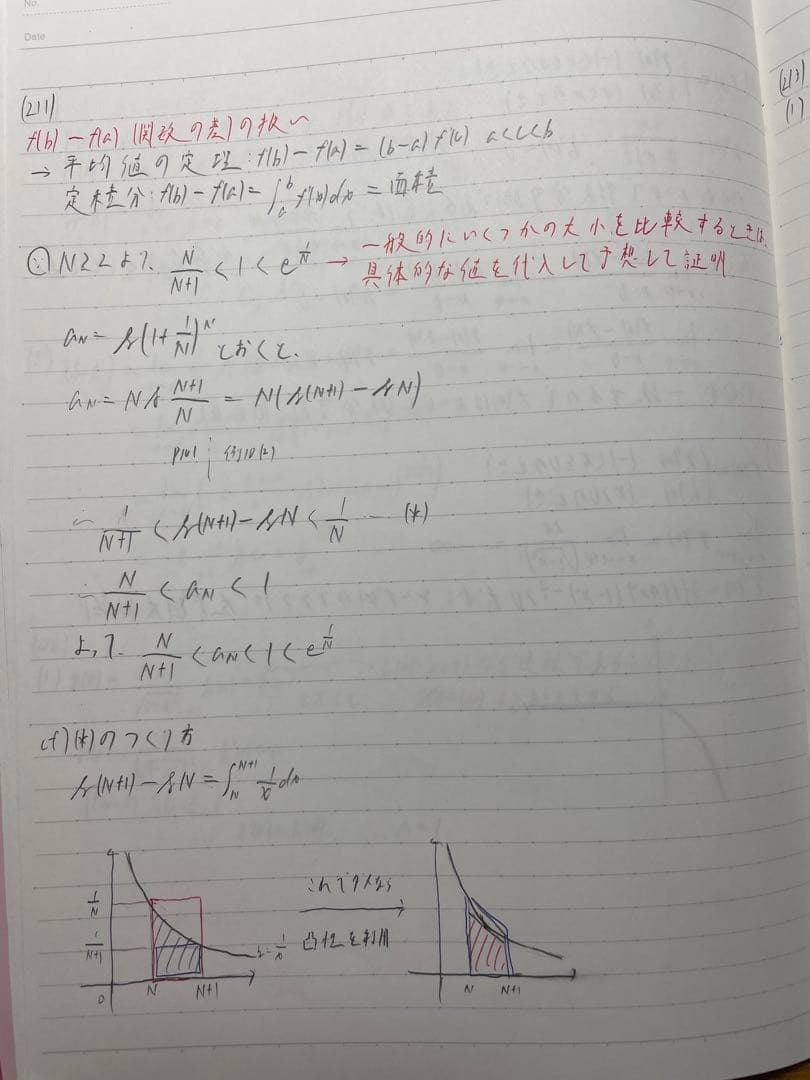 No.
Date
(211)
f(b)-f(a) (関数の差)の扱い
→ 平均値の定理: f(b)-f(a)=(b-a)f'(c) a<c<b
定積分: f(b)-f(a)=∫_a^b f'(x)dx = 面積
∵ N≧2より、 N/(N+1) < 1 < e^(1/N) → 一般的にいくつかの大小を比較するときは、
具体的な値を代入して予想して証明
a_N = log(1+1/N)^N とおくと、
a_N = N log (N+1)/N = N(log(N+1) - log N)
例10(2)
∴ 1/(N+1) < log(N+1) - log N < 1/N … (*)
∴ N/(N+1) < a_N < 1
よって N/(N+1) < a_N < 1 < e^(1/N)
cf) (*)のつくり方
log(N+1) - log N = ∫_N^(N+1) 1/x dx
1/N
1/(N+1)
0
N
N+1
y=1/x
これでダメなら
凸性を利用
N
N+1
(213)
(1)